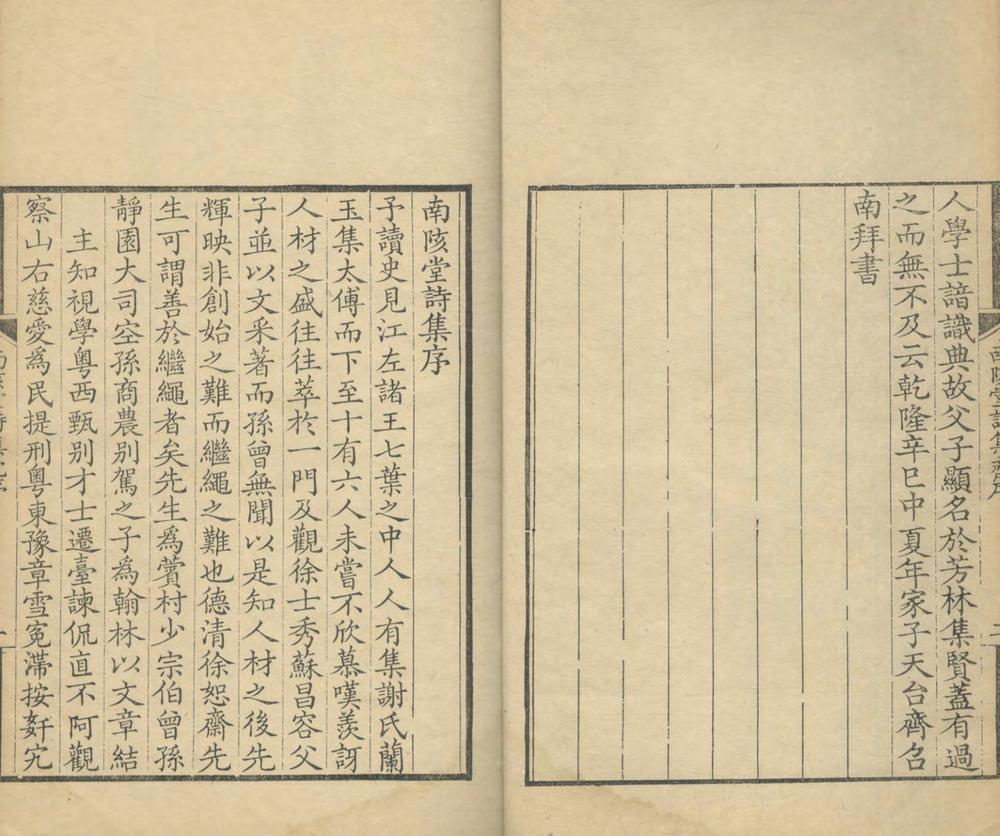 人學士諳識典故父子顯名於芳林集賢蓋有過
之而無不及云乾隆辛巳中夏年家子天台齊召
南拜書
南陔堂詩集序
予讀史見江左諸王七葉之中人人有集謝氏蘭
玉集太傅而下至十有六人未嘗不欣慕嘆羨訝
人材之盛往往萃於一門及觀徐士秀蘇昌容父
子並以文采著而孫曾無聞以是知人材之後先
輝映非創始之難而繼繩之難也德清徐恕齋先
生可謂善於繼繩者矣先生為蘋村少宗伯曾孫
靜園大司空孫商農別駕之子為翰林以文章結
主知視學粵西甄别才士遷臺諫侃直不阿觀
察山右慈愛為民提刑粵東豫章雪冤滯按奸宄